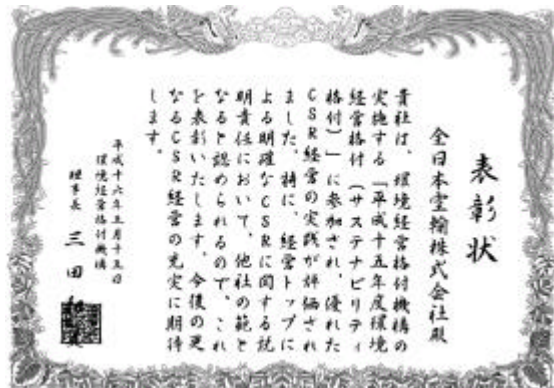 表彰状
全日本空輸株式会社殿
貴社は、環境経営格付機構の
実施する「平成十五年度環境
経営格付（サステナビリティ
格付）」に参加され、優れた
CSR経営の実践が評価され
ました。特に、経営トップに
よる明確なCSRに関する説
明責任において、他社の範と
なると認められるので、これ
を表彰いたします。今後の更
なるCSR経営の充実に期待
します。
平成十六年三月十五日
環境経営格付機構
理事長 三田和美